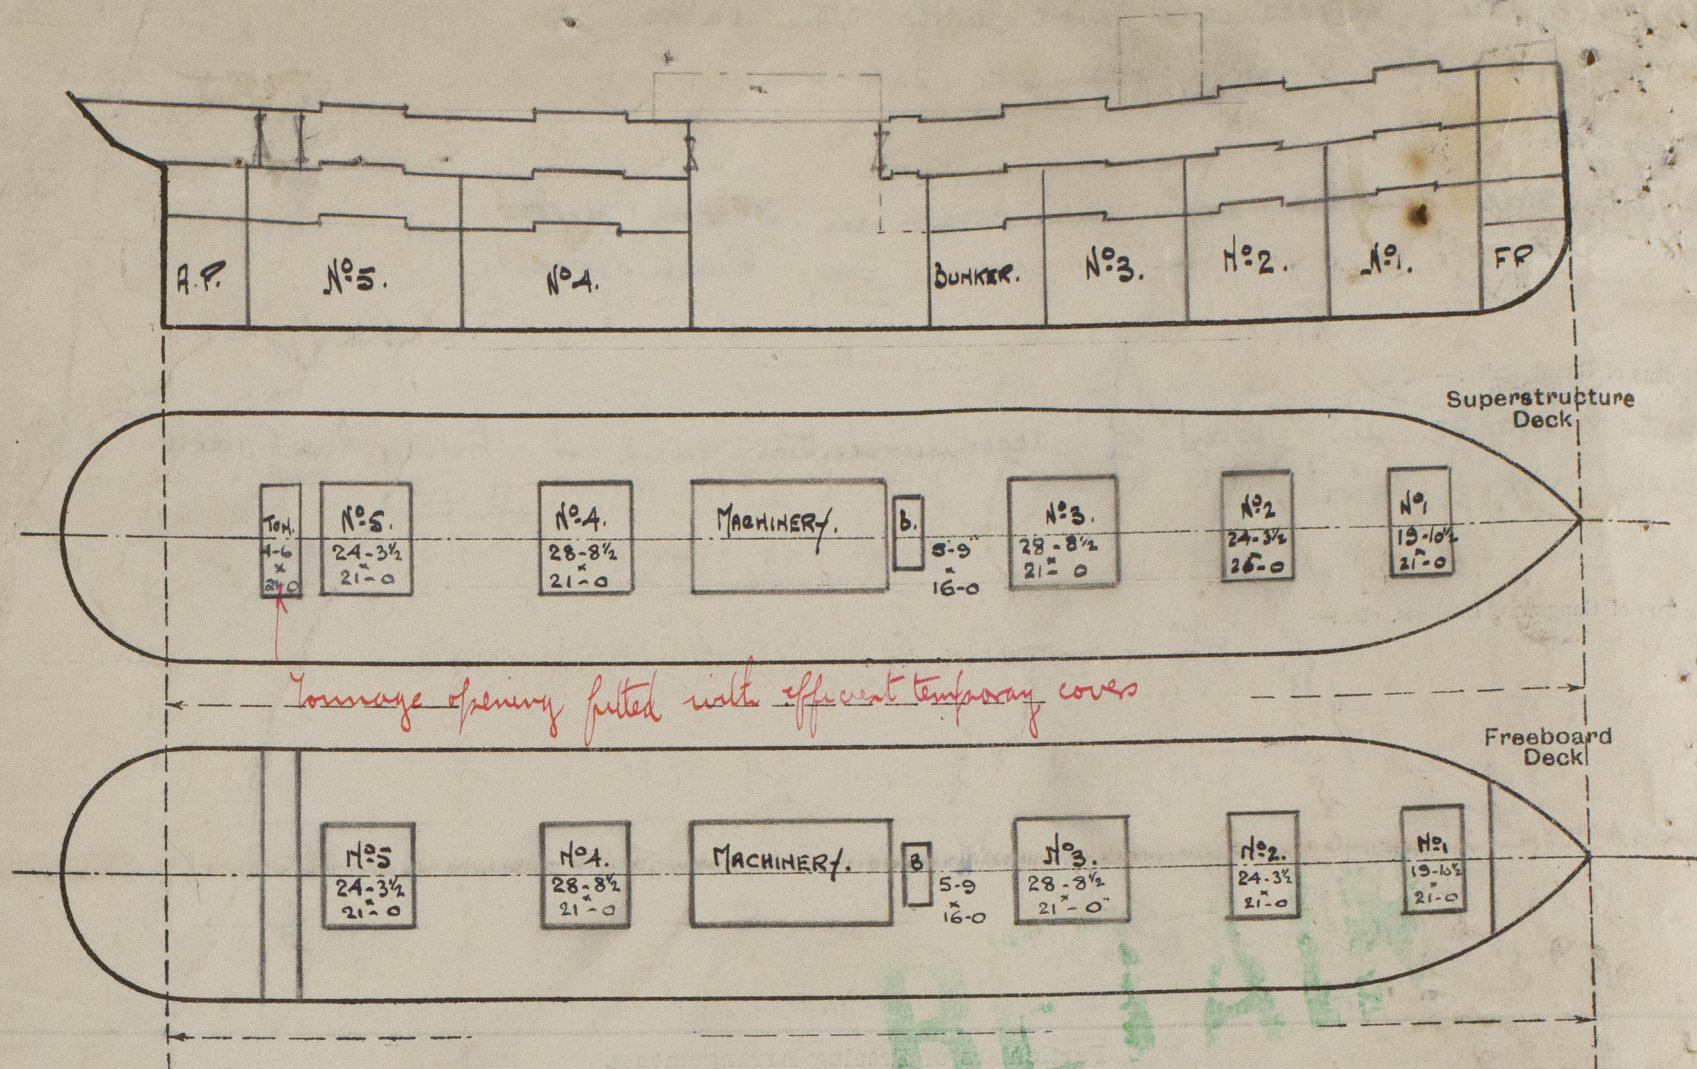 A.P.
Nº5.
Nº4.
BUNKER.
Nº3.
Nº2.
Nº1.
FP
Superstructure
Deck
TON.
4-6
x
Nº5.
24-3½
x
21-0
Nº4.
28-8½
x
21-0
MACHINERY.
B.
5-9
x
16-0
Nº3.
28-8½
x
21-0
Nº2
24-3½
Nº1
19-10½
x
21-0
Tonnage opening fitted with efficient temporay covers
Freeboard
Deck
Nº5
24-3½
x
21-0
Nº4.
28-8½
x
21-0
MACHINERY.
B
5-9
x
16-0
Nº3.
28-8½
x
21-0
Nº2.
24-3½
x
21-0
Nº1
19-10½
x
21-0
RETAIN